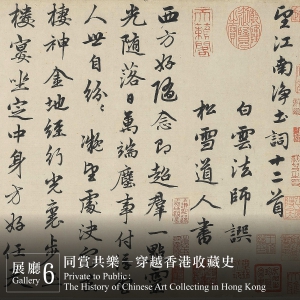 望江南淨土詞十二首
白雲法師譔
松雪道人書
西方好隨念即超群一點靈
光隨落日萬端塵事付
人世自紛々凝望處
棲神金地經行光裏步
樓宴坐定中身方好任
展廳
Gallery 6
同賞共樂 — 穿越香港收藏史
Private to Public :
The History of Chinese Art Collecting in Hong Kong